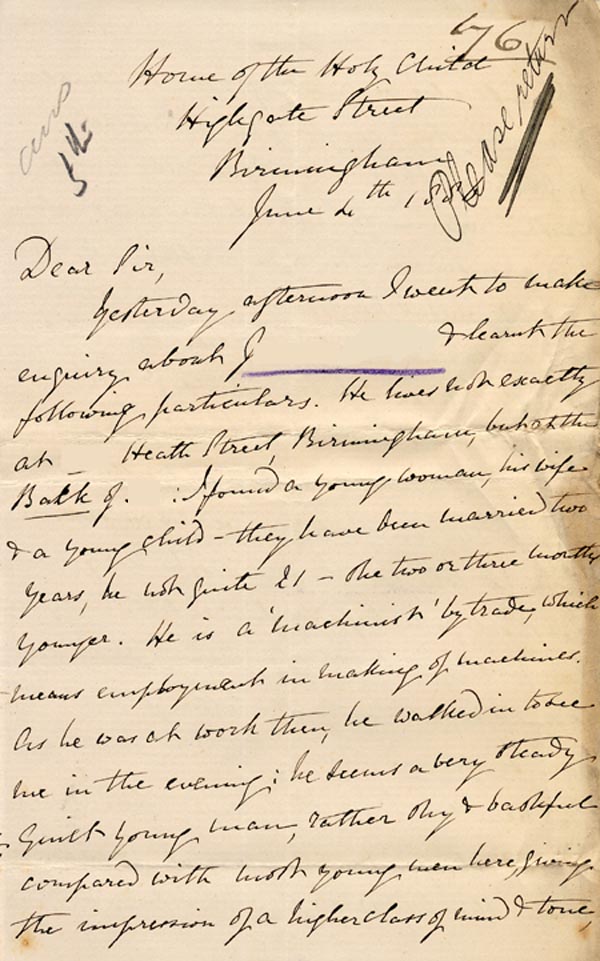 76
Please return
Home of the Holy Child
Highgate Street
Birmingham
June 4th 188
ans
5th
Dear Sir,
Yesterday afternoon I went to make
enquiry about J & learnt the
following particulars. He lives not exactly
at Heath Street, Birmingham, but at the
Back of. : I found a young woman, his wife
& a young child – they have been married two
years, he not quite 21 – she two or three months
younger. He is a 'machinist' by trade, which
means employment in making of machines.
As he was at work then, he walked in to see
me in the evening; he seems a very steady
quiet young man, rather shy & bashful
compared with most young men here, giving
the impression of a higher class of mind & tone,